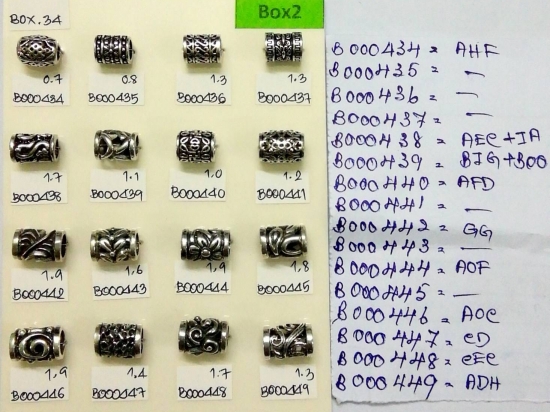 BOX.34
Box2
0.7 0.8 1.3 1.3
B000434 B000435 B000436 B000437
1.7 1.1 1.0 1.2
B000438 B000439 B000440 B000441
1.9 1.6 1.9 1.8
B000442 B000443 B000444 B000445
1.9 1.4 1.7 1.3
B000446 B000447 B000448 B000449
B000434 = AHF
B000435 = —
B000436 = —
B000437 = —
B000438 = AEC+IA
B000439 = BIG+BOO
B000440 = AFD
B000441 = —
B000442 = GG
B000443 = —
B000444 = AOF
B000445 = —
B000446 = AOC
B000447 = CD
B000448 = CEC
B000449 = ADH